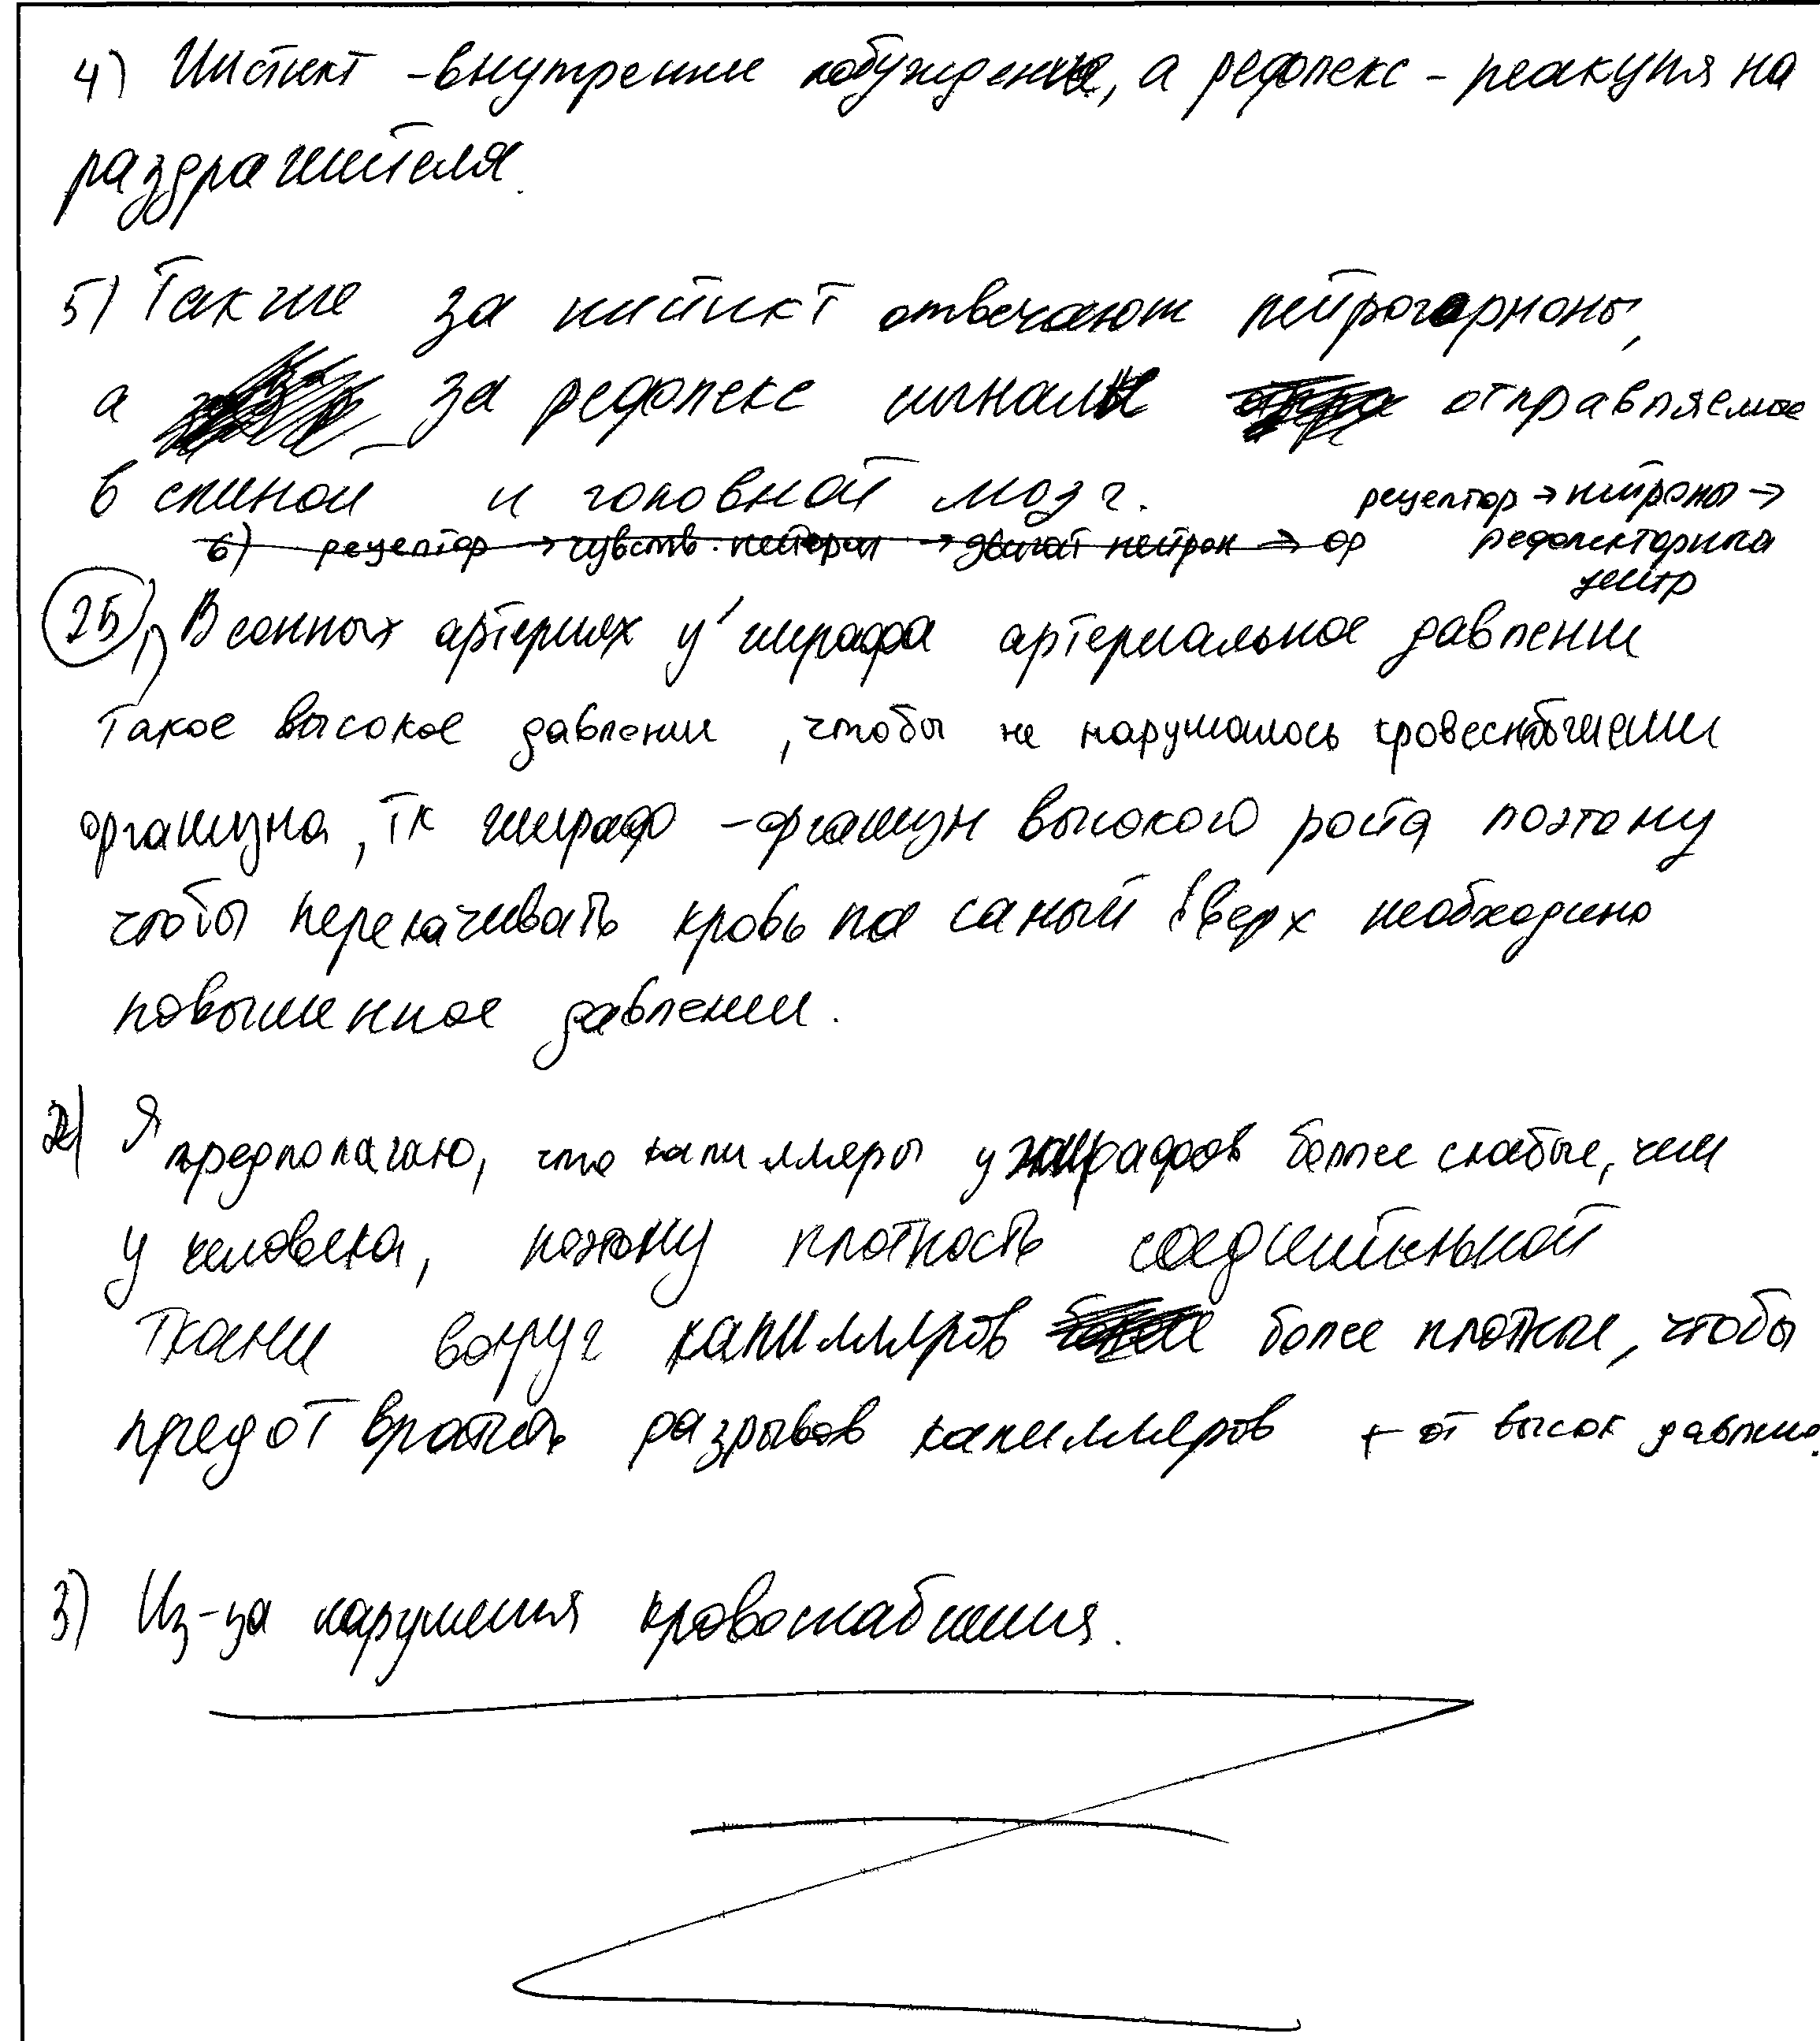 4) Инстинкт - внутренние побуждение, а рефлекс - реакция на
раздражителя.
5) Также за инстинкт отвечают нейрогормоны,
а за рефлекс сигналы отправляемые
в спиной и головной мозг. рецептор → нейроны →
6) рецептор → чувств. нейрон → двигат нейрон → ор рефлекторный
центр
25 1) В сонных артериях у жирафа артериальное давление
такое высокое давление, чтобы не нарушалось кровеснабжение
организма, тк жираф - организм высокого роста поэтому
чтобы перекачивать кровь на самый вверх необходимо
повышенное давление.
2) Я предполагаю, что капилляры у жирафов более слабые, чем
у человека, поэтому плотность соединительной
ткани вокруг капилляров более плотные, чтобы
предотвратить разрывов капилляров от высок давлен.
3) Из-за нарушения кровоснабжения.